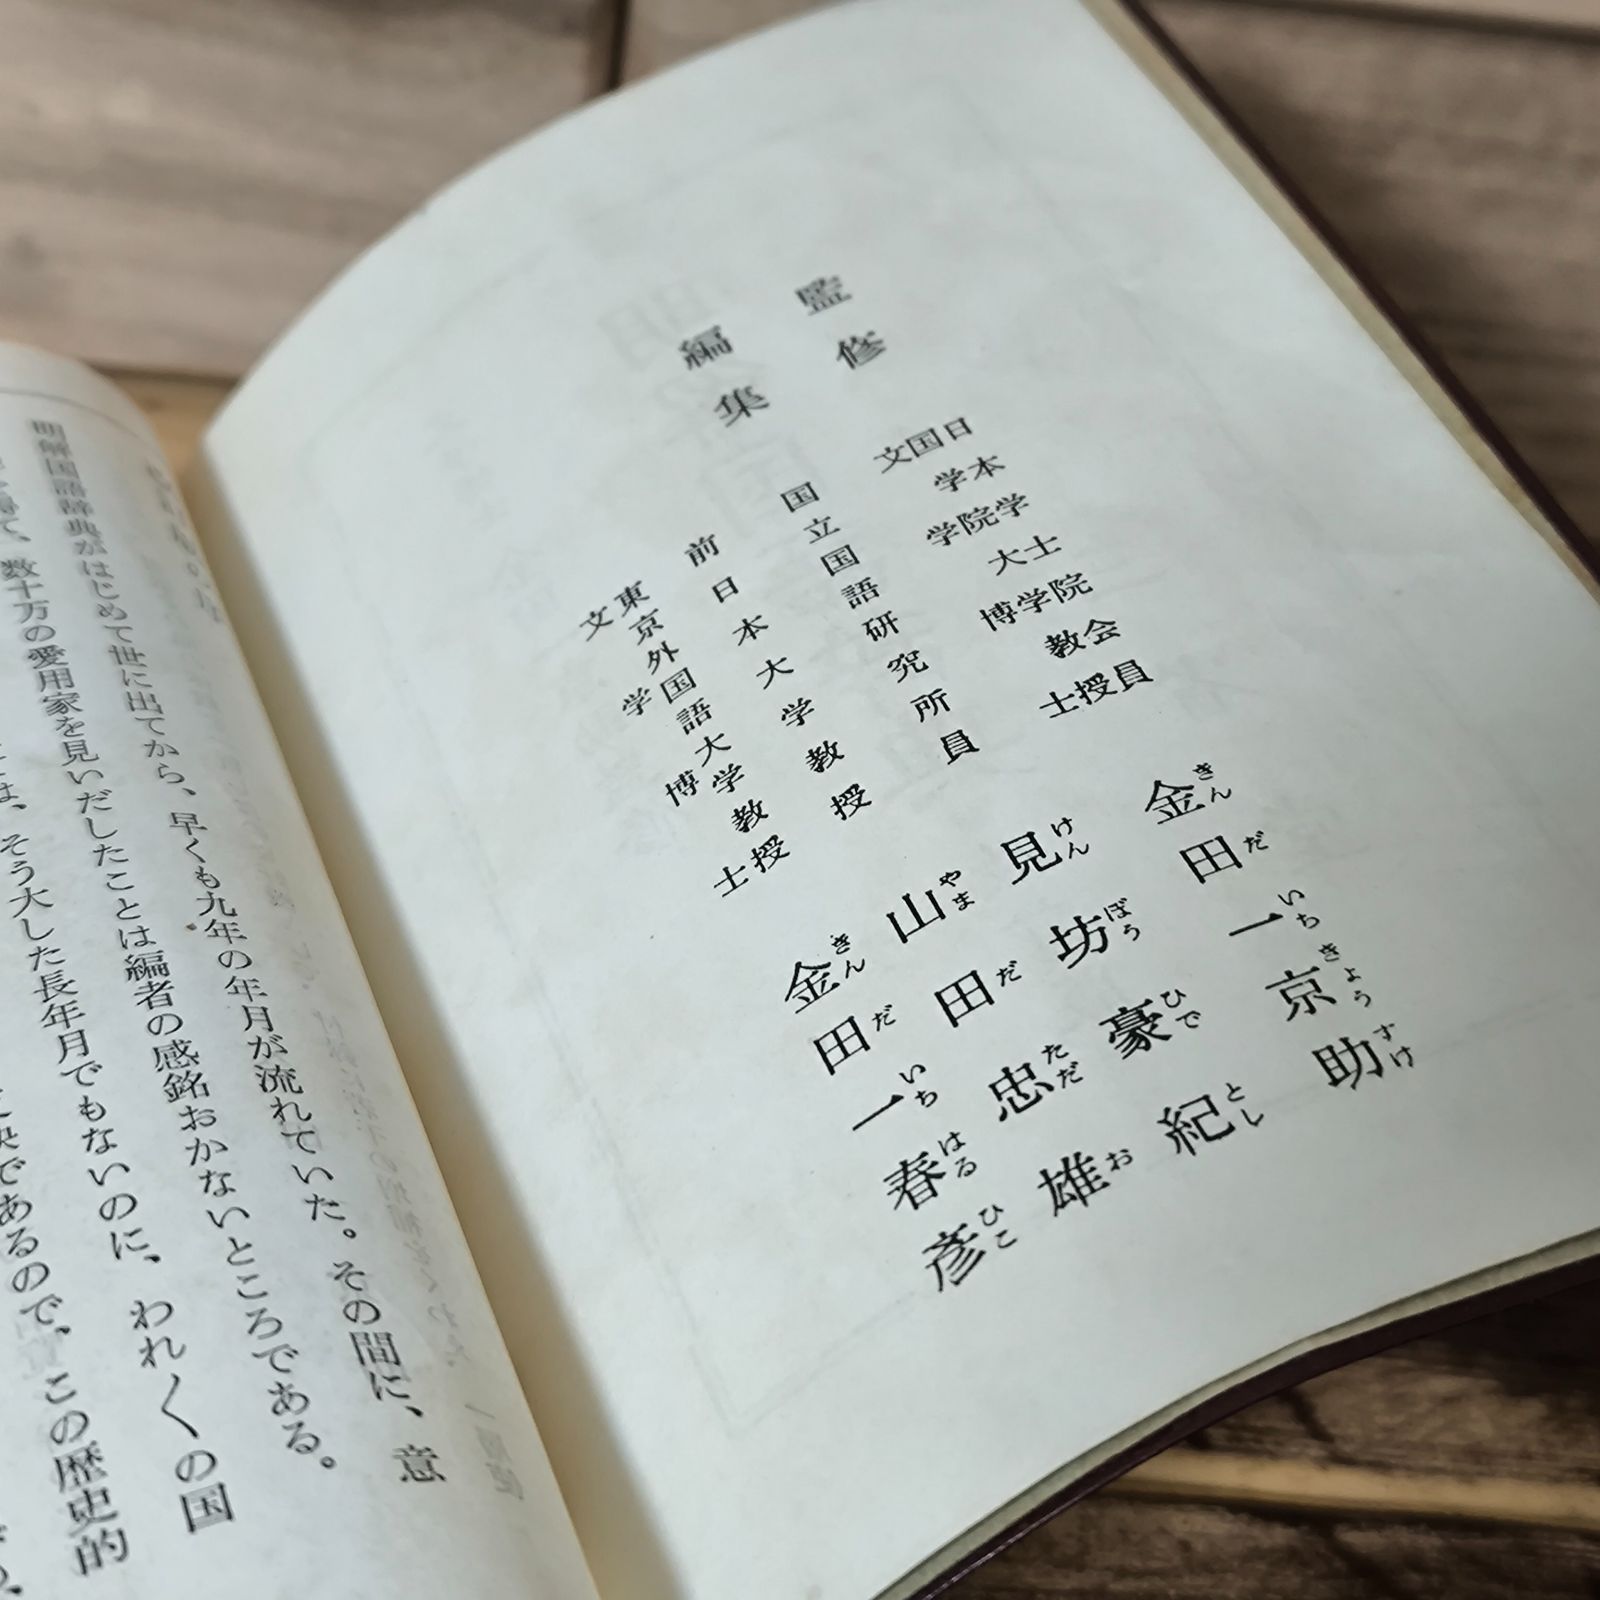 監修
日本学士院会員
国学院大学教授
文学博士
金田一京助
きんだいちきょうすけ
編集
国立国語研究所員
見坊豪紀
けんぼうひでとし
前日本大学教授
山田忠雄
やまだただお
東京外国語大学教授
文学博士
金田一春彦
きんだいちはるひこ
明解国語辞典がはじめて世に出てから、早くも九年の年月が流れていた。その間に、意
得て、数十万の愛用家を見いだしたことは編者の感銘おかないところである。
は、そう大した長年月でもないのに、われ〱の国
であるので、この歴史的